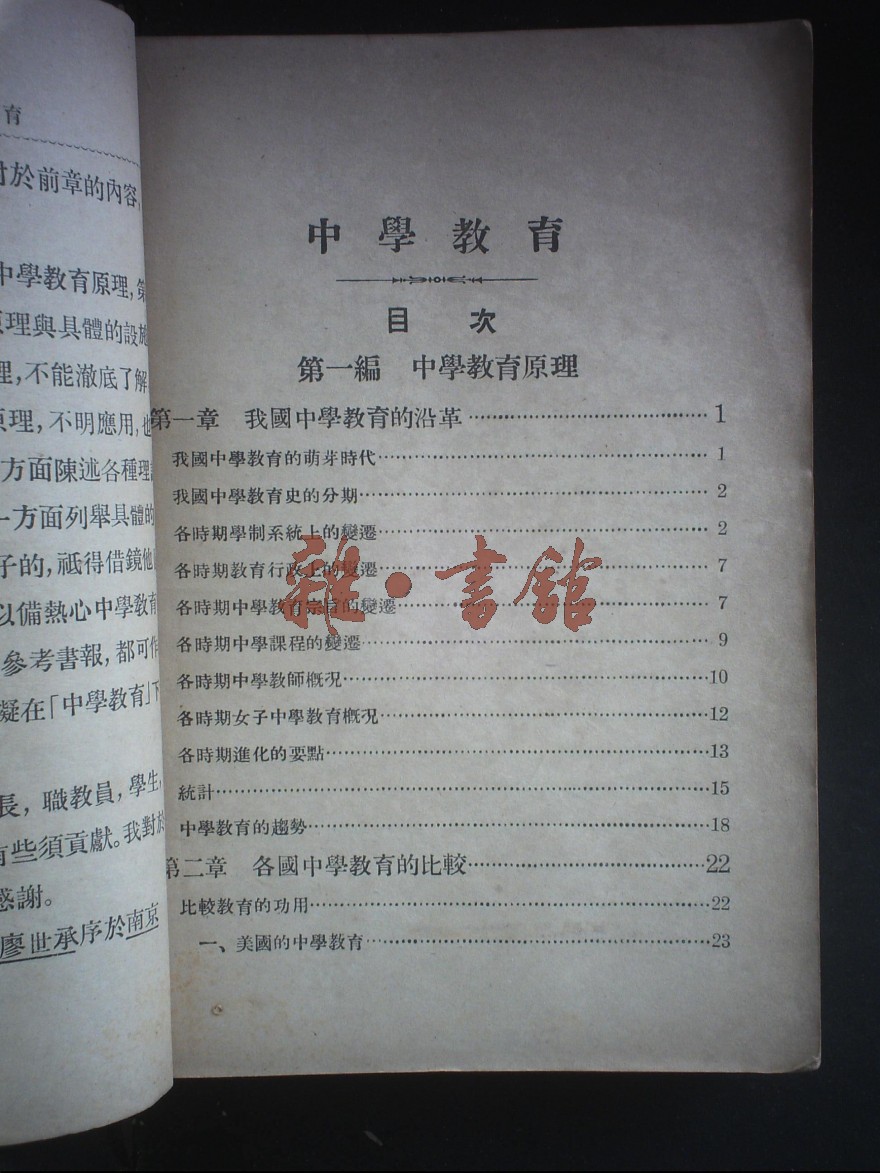 育
對於前章的內容,
中學教育原理,第
原理與具體的設施
理,不能澈底了解
原理,不明應用,也
方面陳述各種理
一方面列舉具體的
子的,祗得借鏡他
以備熱心中學教育
參考書報,都可作
擬在「中學教育」下
長,職教員,學生,
有些須貢獻。我對於
感謝。
廖世承序於南京
中學教育
目次
第一編 中學教育原理
第一章 我國中學教育的沿革……1
我國中學教育的萌芽時代……1
我國中學教育史的分期……2
各時期學制系統上的變遷……2
各時期教育行政上的變遷……7
各時期中學教育宗旨的變遷……7
各時期中學課程的變遷……9
各時期中學教師概況……10
各時期女子中學教育概況……12
各時期進化的要點……13
統計……15
中學教育的趨勢……18
第二章 各國中學教育的比較……22
比較教育的功用……22
一、美國的中學教育……23
雜·書館